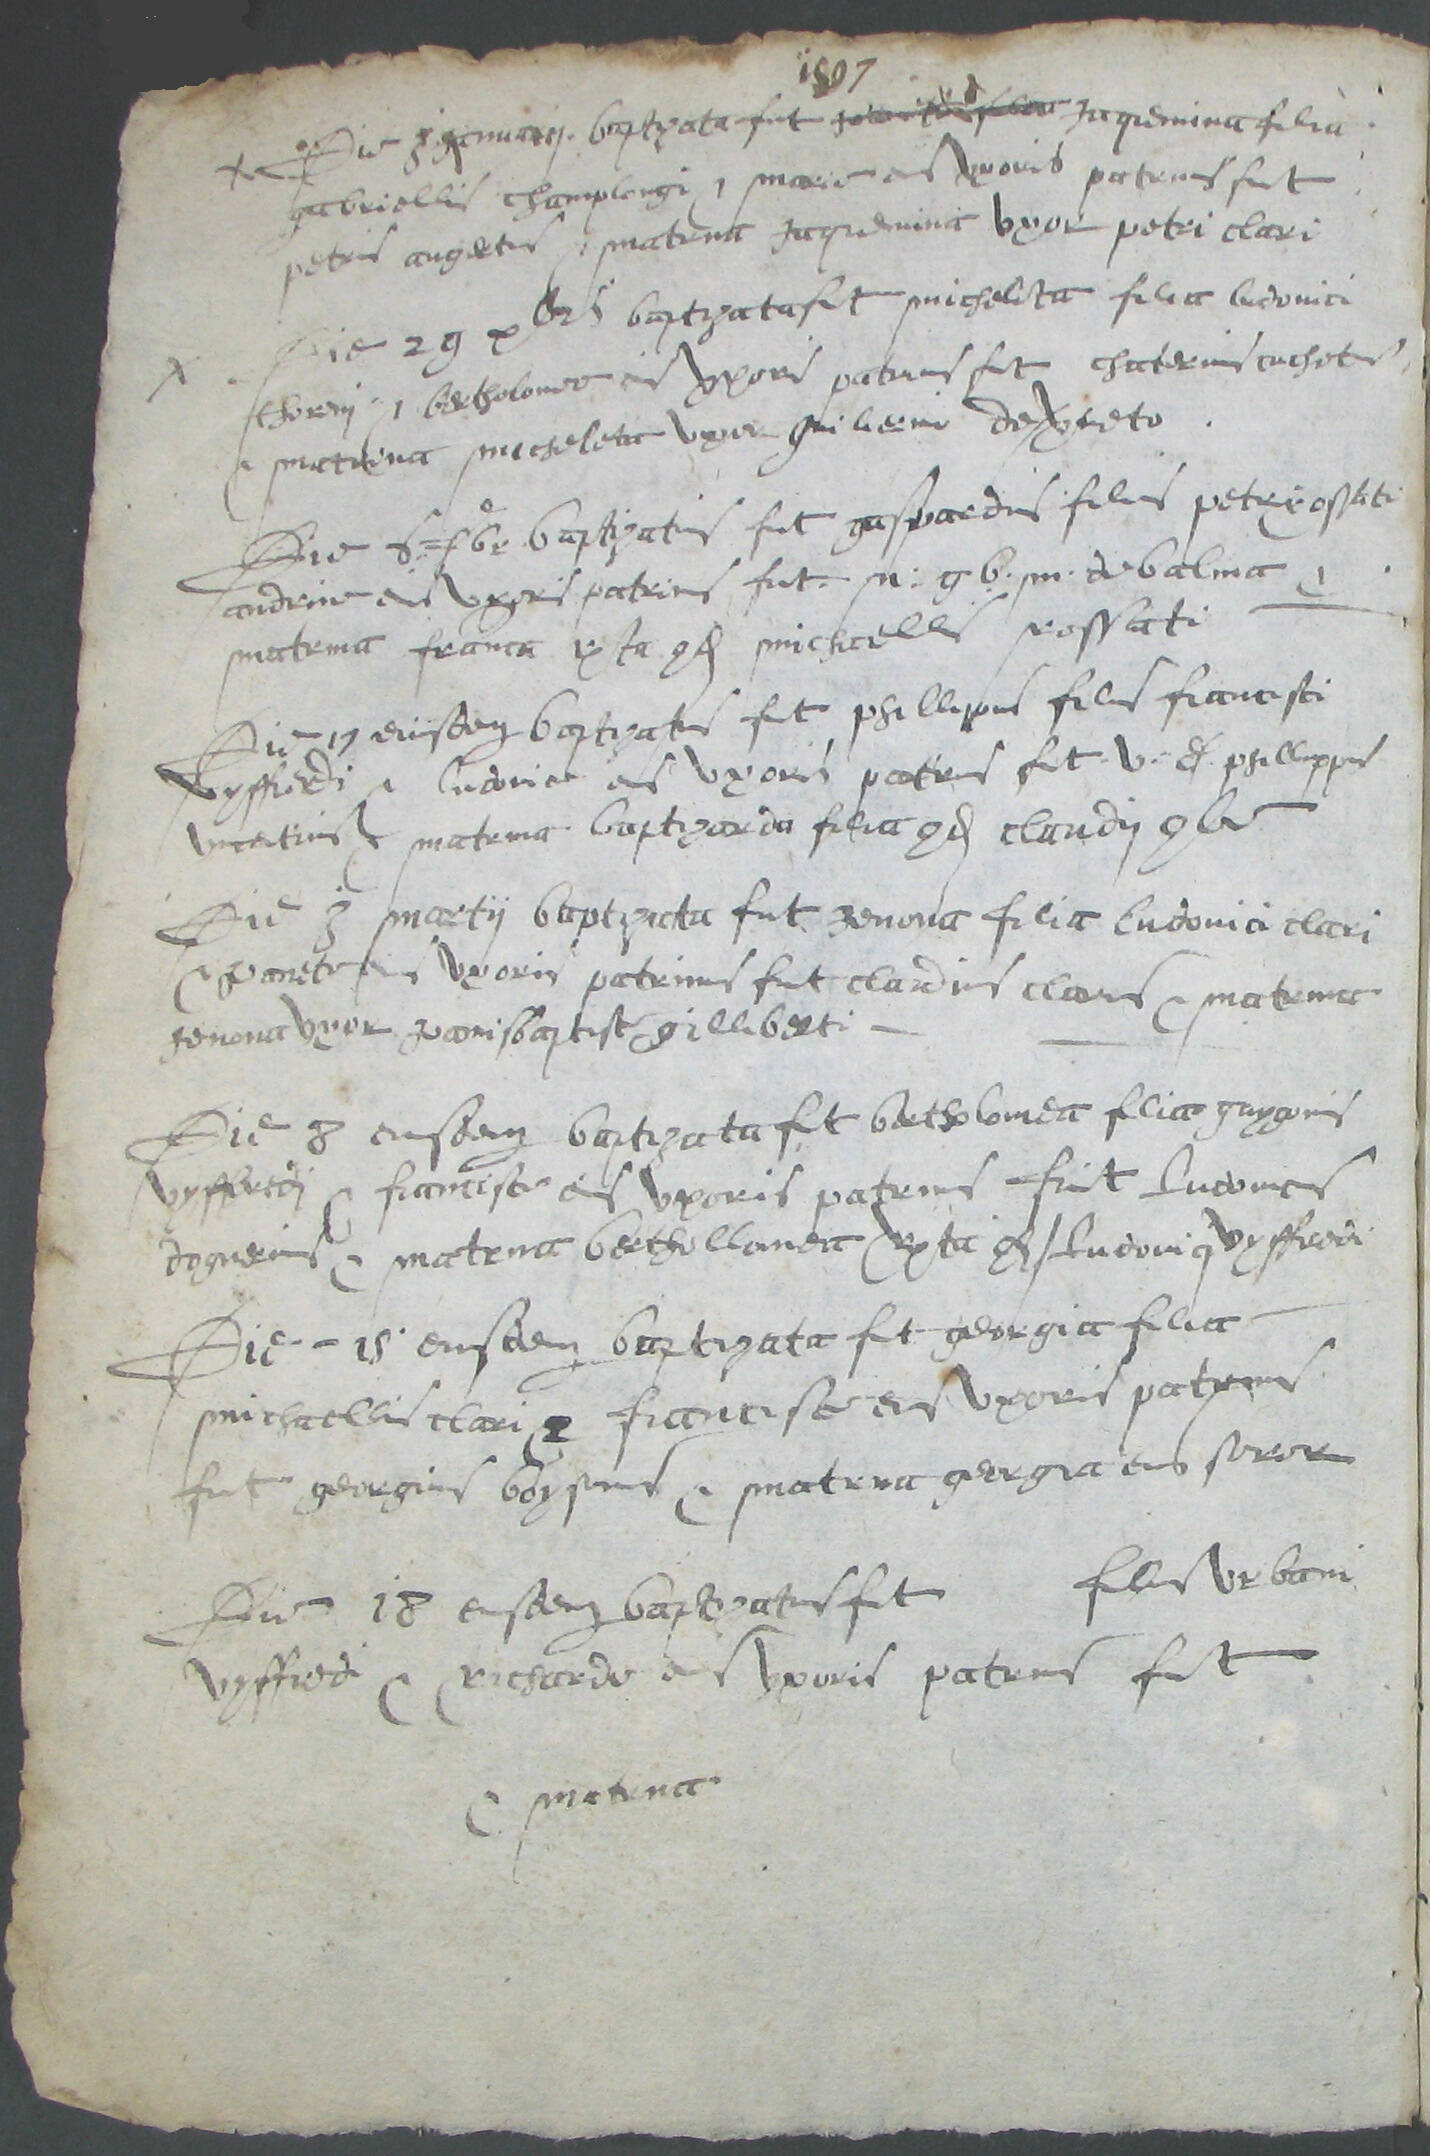 1597
Die 3 januarij baptizata fut jaquemina filia
gabriellis champlongi & marie eius uxoris patrinus fut
petrus augertus & matrina jaquemina uxor petri clari
Die 29 xbris baptizata fut michelleta filia ludovici
& bertholomee eius uxoris patrinus fut
& matrina micheleta uxor guilermi
Die baptizatus fut gaspardus filius petri rossati
andrine eius uxoris patrinus fut n: g b. m. de balma &
matrina franca rxta qd michaellis rossati
Die 17 eiusdem baptizatus fut phillipus filius francisci
vyffredi & ludovice eius uxoris patrinus fut v. d. phillippus
& matrina baptizarda filia qd claudij
Die 3 martij baptizata fut jenona filia ludovici clari
& eius uxoris patrinus fut claudius clarus & matrina
jenona uxor joanisbaptiste gilliberti
Die 8 eiusdem baptizata fut bertholomea filia guygonis
vyffredi & francisce eius uxoris patrinus fuit Ludovicus
& matrina berthollomea rxta qd Ludovici vyffredi
Die - 15 eiusdem baptizata fut georgia filia
michaellis clari & francisce eius uxoris patrinus
fut georgius & matrina georgia eius soror
Die 18 eiusdem baptizatus fut filius urbani
vyffredi & richarde eius uxoris patrinus fut
& matrina